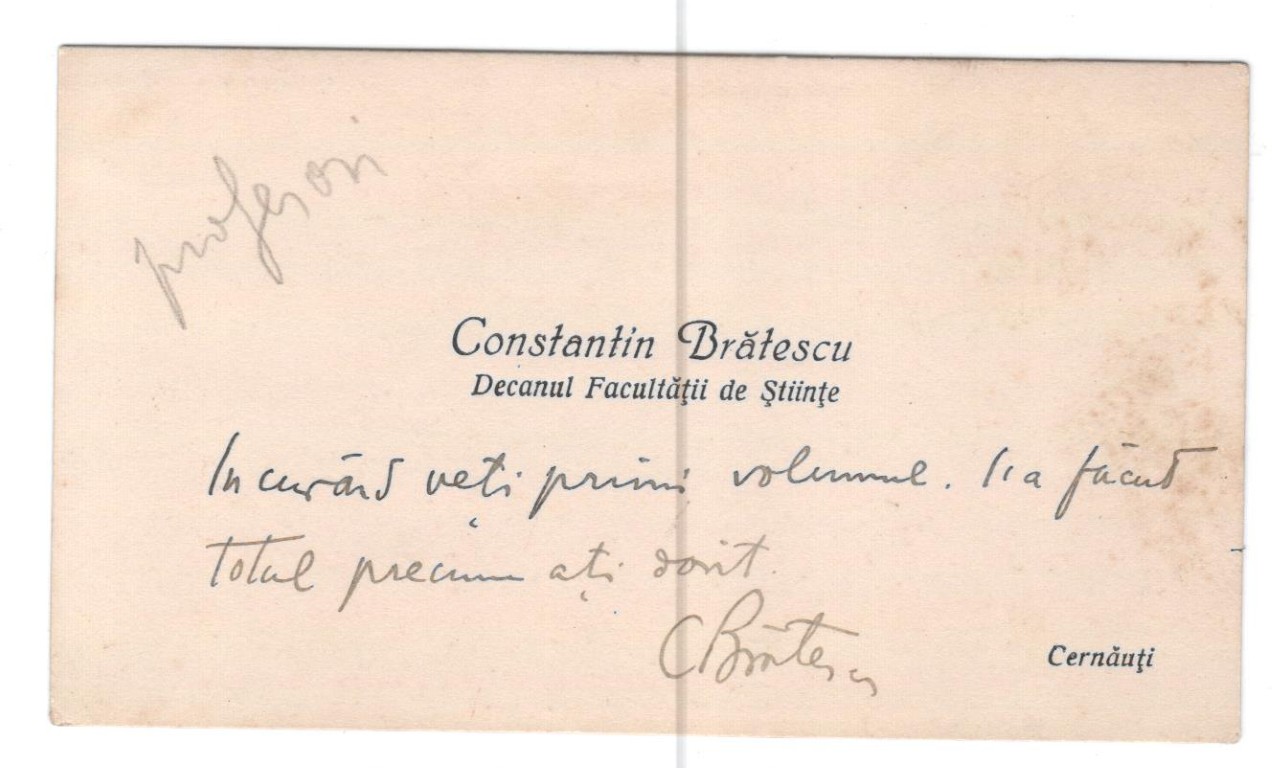 profesori
Constantin Brătescu
Decanul Facultăţii de Ştiinţe
In curând veţi primi volumul. S'a făcut
totul precum aţi dorit.
CBrătescu
Cernăuţi